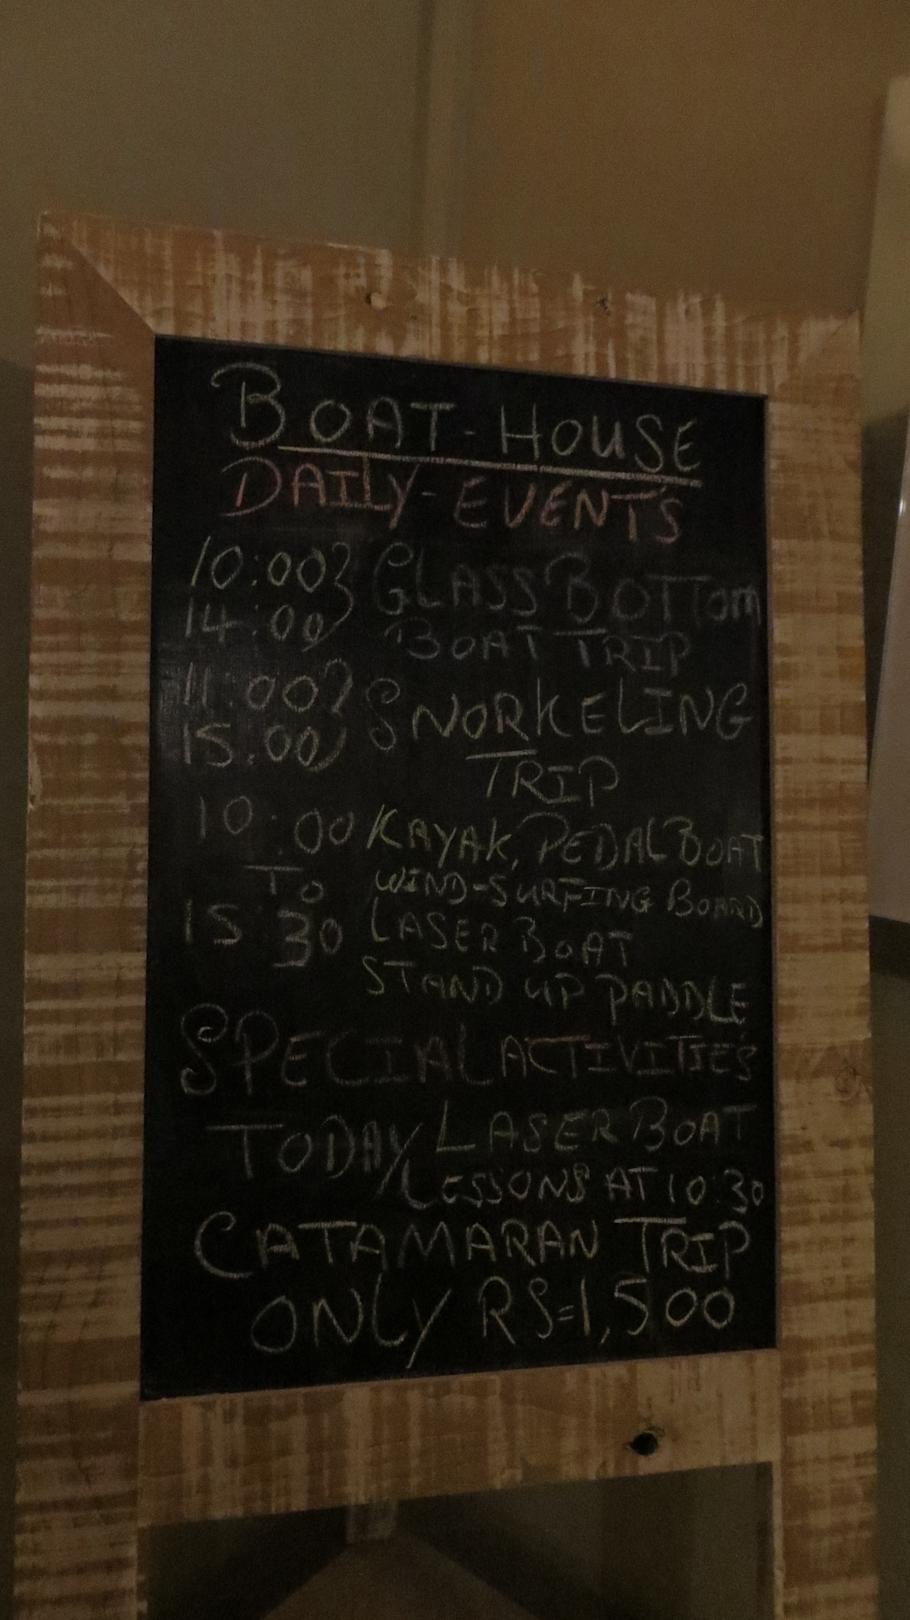 BOAT-HOUSE
DAILY-EVENT'S
10:00} GLASS BOTTOM
14:00} BOAT TRIP
11:00} SNORKELING
15:00} TRIP
10:00 KAYAK, PEDAL BOAT
TO WIND-SURFING BOARD
15 30 LASER BOAT
STAND UP PADDLE
SPECIAL ACTIVITIE'S
TODAY LASER BOAT
LESSONS AT 10:30
CATAMARAN TRIP
ONLY RS=1,500